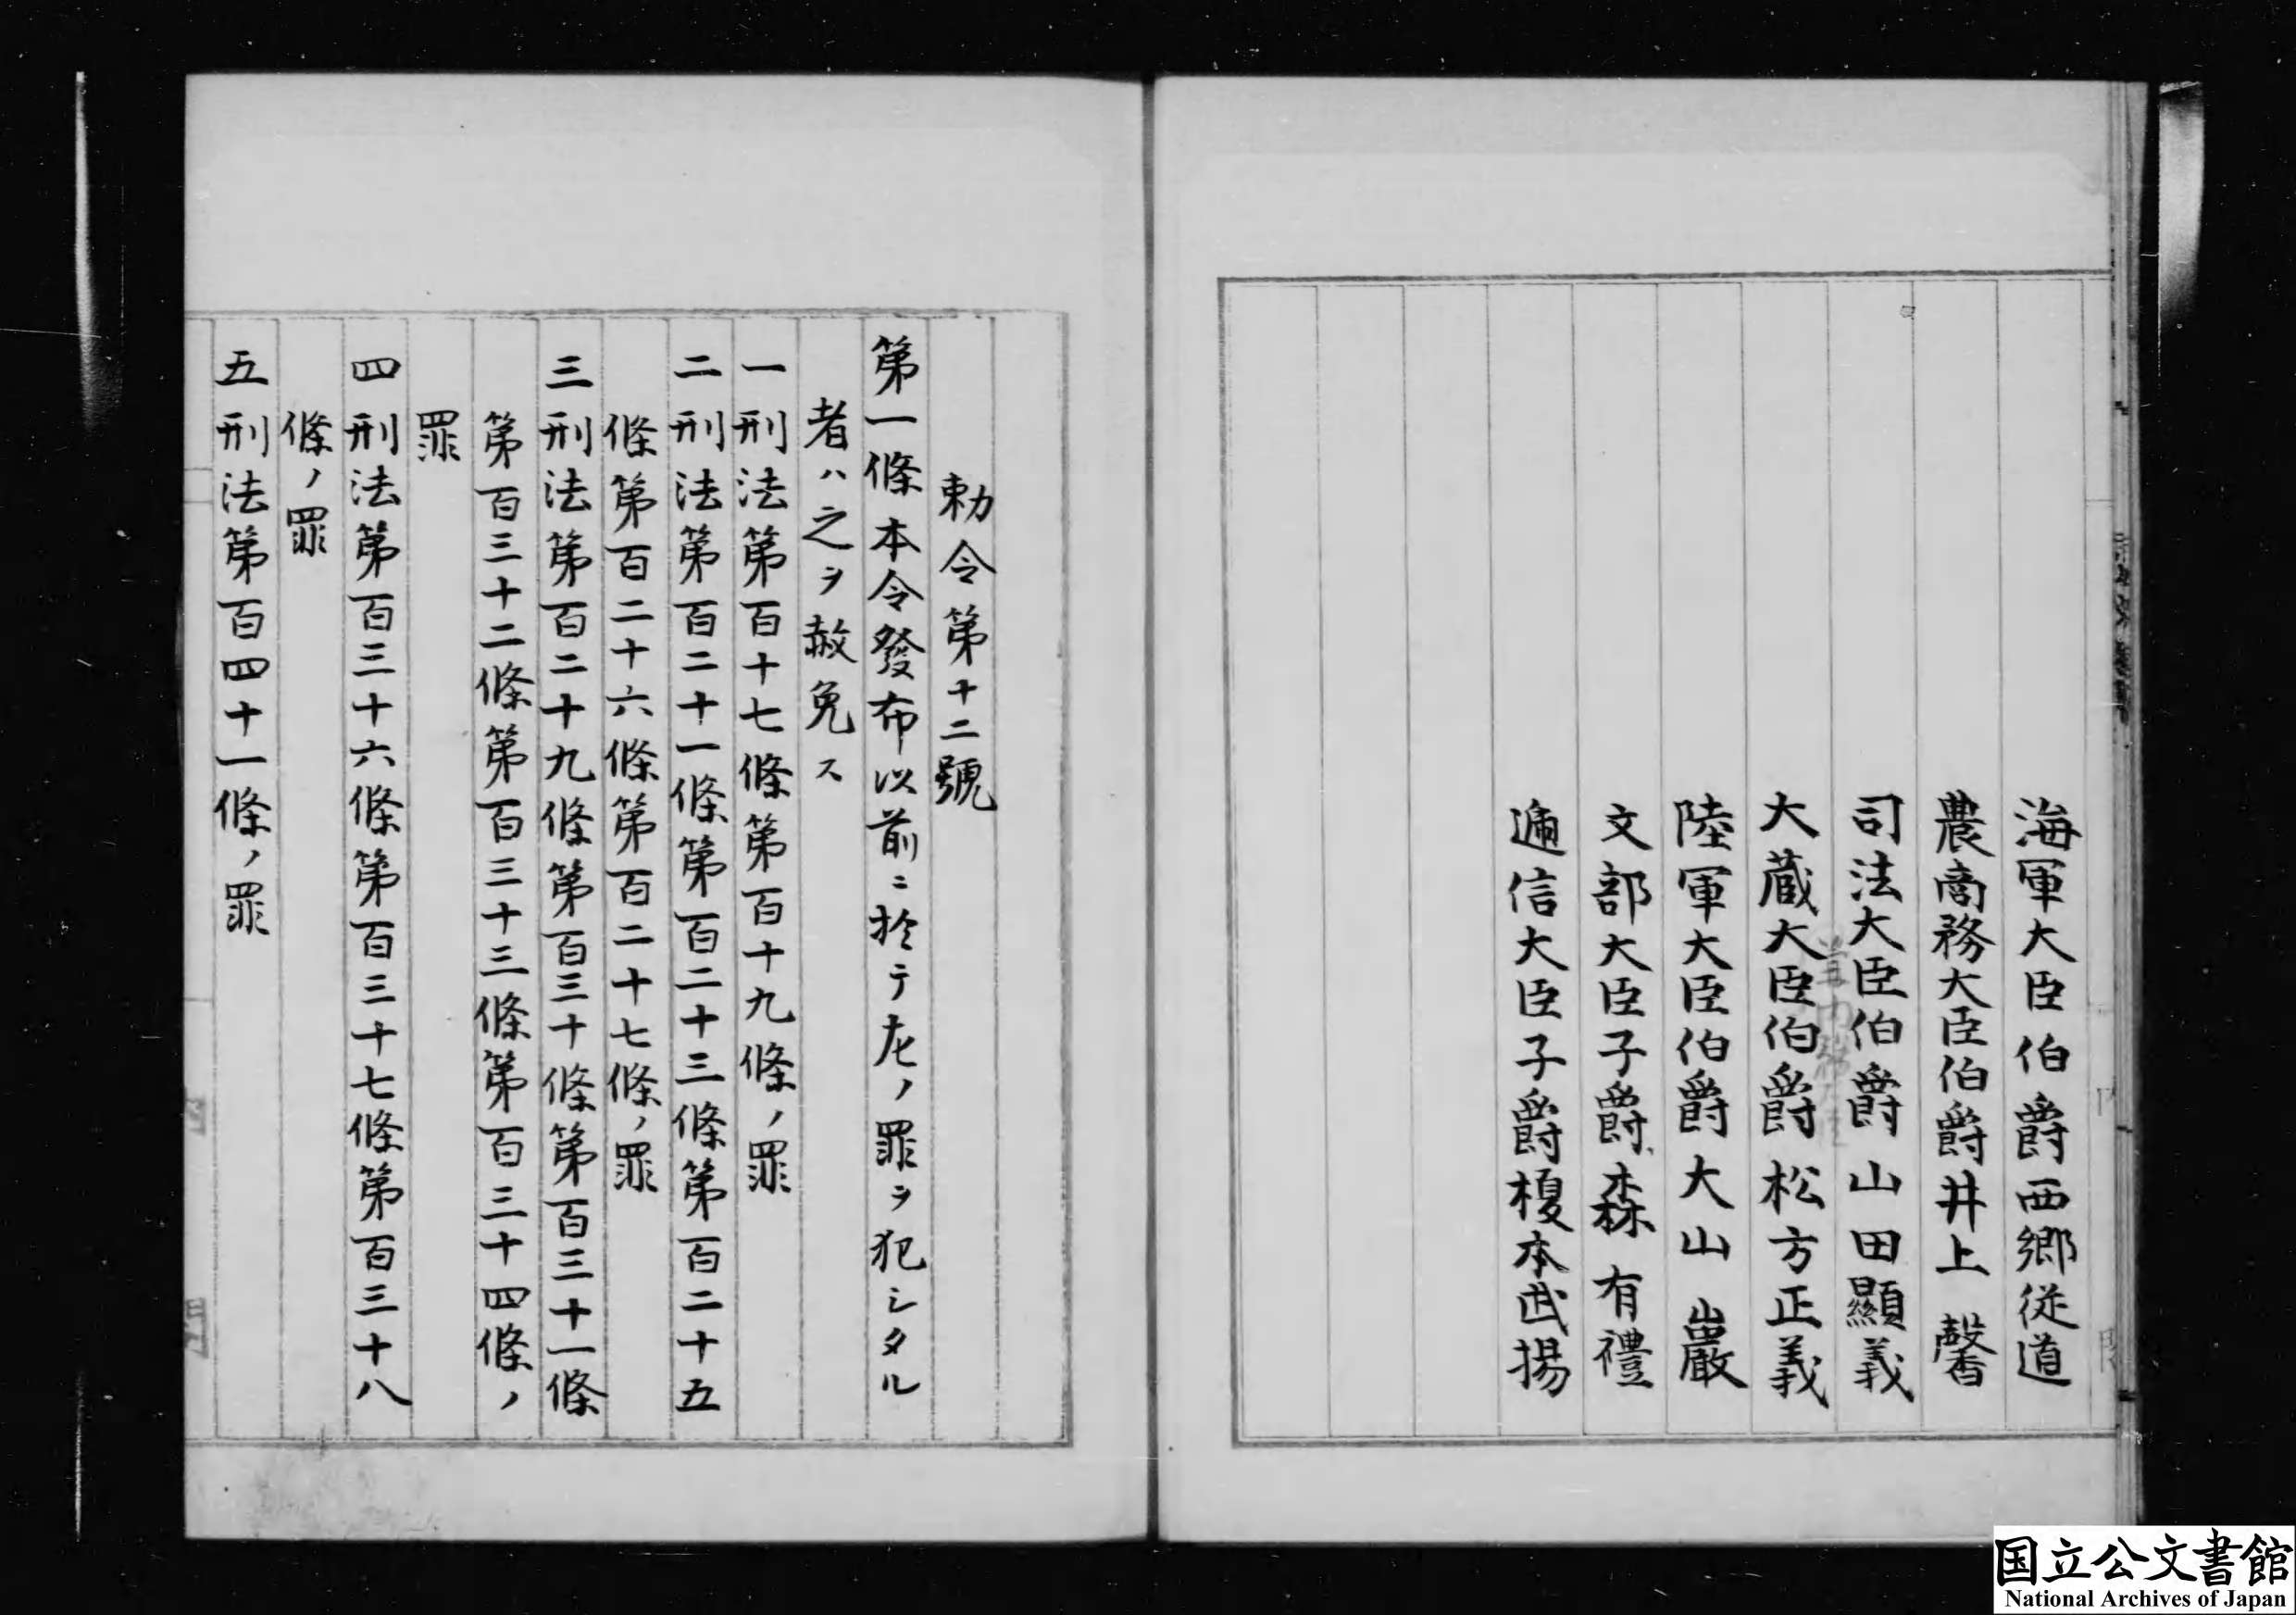 海軍大臣伯爵西郷従道
農商務大臣伯爵井上馨
司法大臣伯爵山田顯義
大蔵大臣伯爵松方正義
陸軍大臣伯爵大山巖
文部大臣子爵森有禮
遞信大臣子爵榎本武揚
勅令第十二號
第一條本令發布以前ニ於テ左ノ罪ヲ犯シタル
者ハ之ヲ赦免ス
一刑法第百十七條第百十九條ノ罪
二刑法第百二十一條第百二十三條第百二十五
條第百二十六條第百二十七條ノ罪
三刑法第百二十九條第百三十條第百三十一條
第百三十二條第百三十三條第百三十四條ノ
罪
四刑法第百三十六條第百三十七條第百三十八
條ノ罪
五刑法第百四十一條ノ罪
国立公文書館
National Archives of Japan